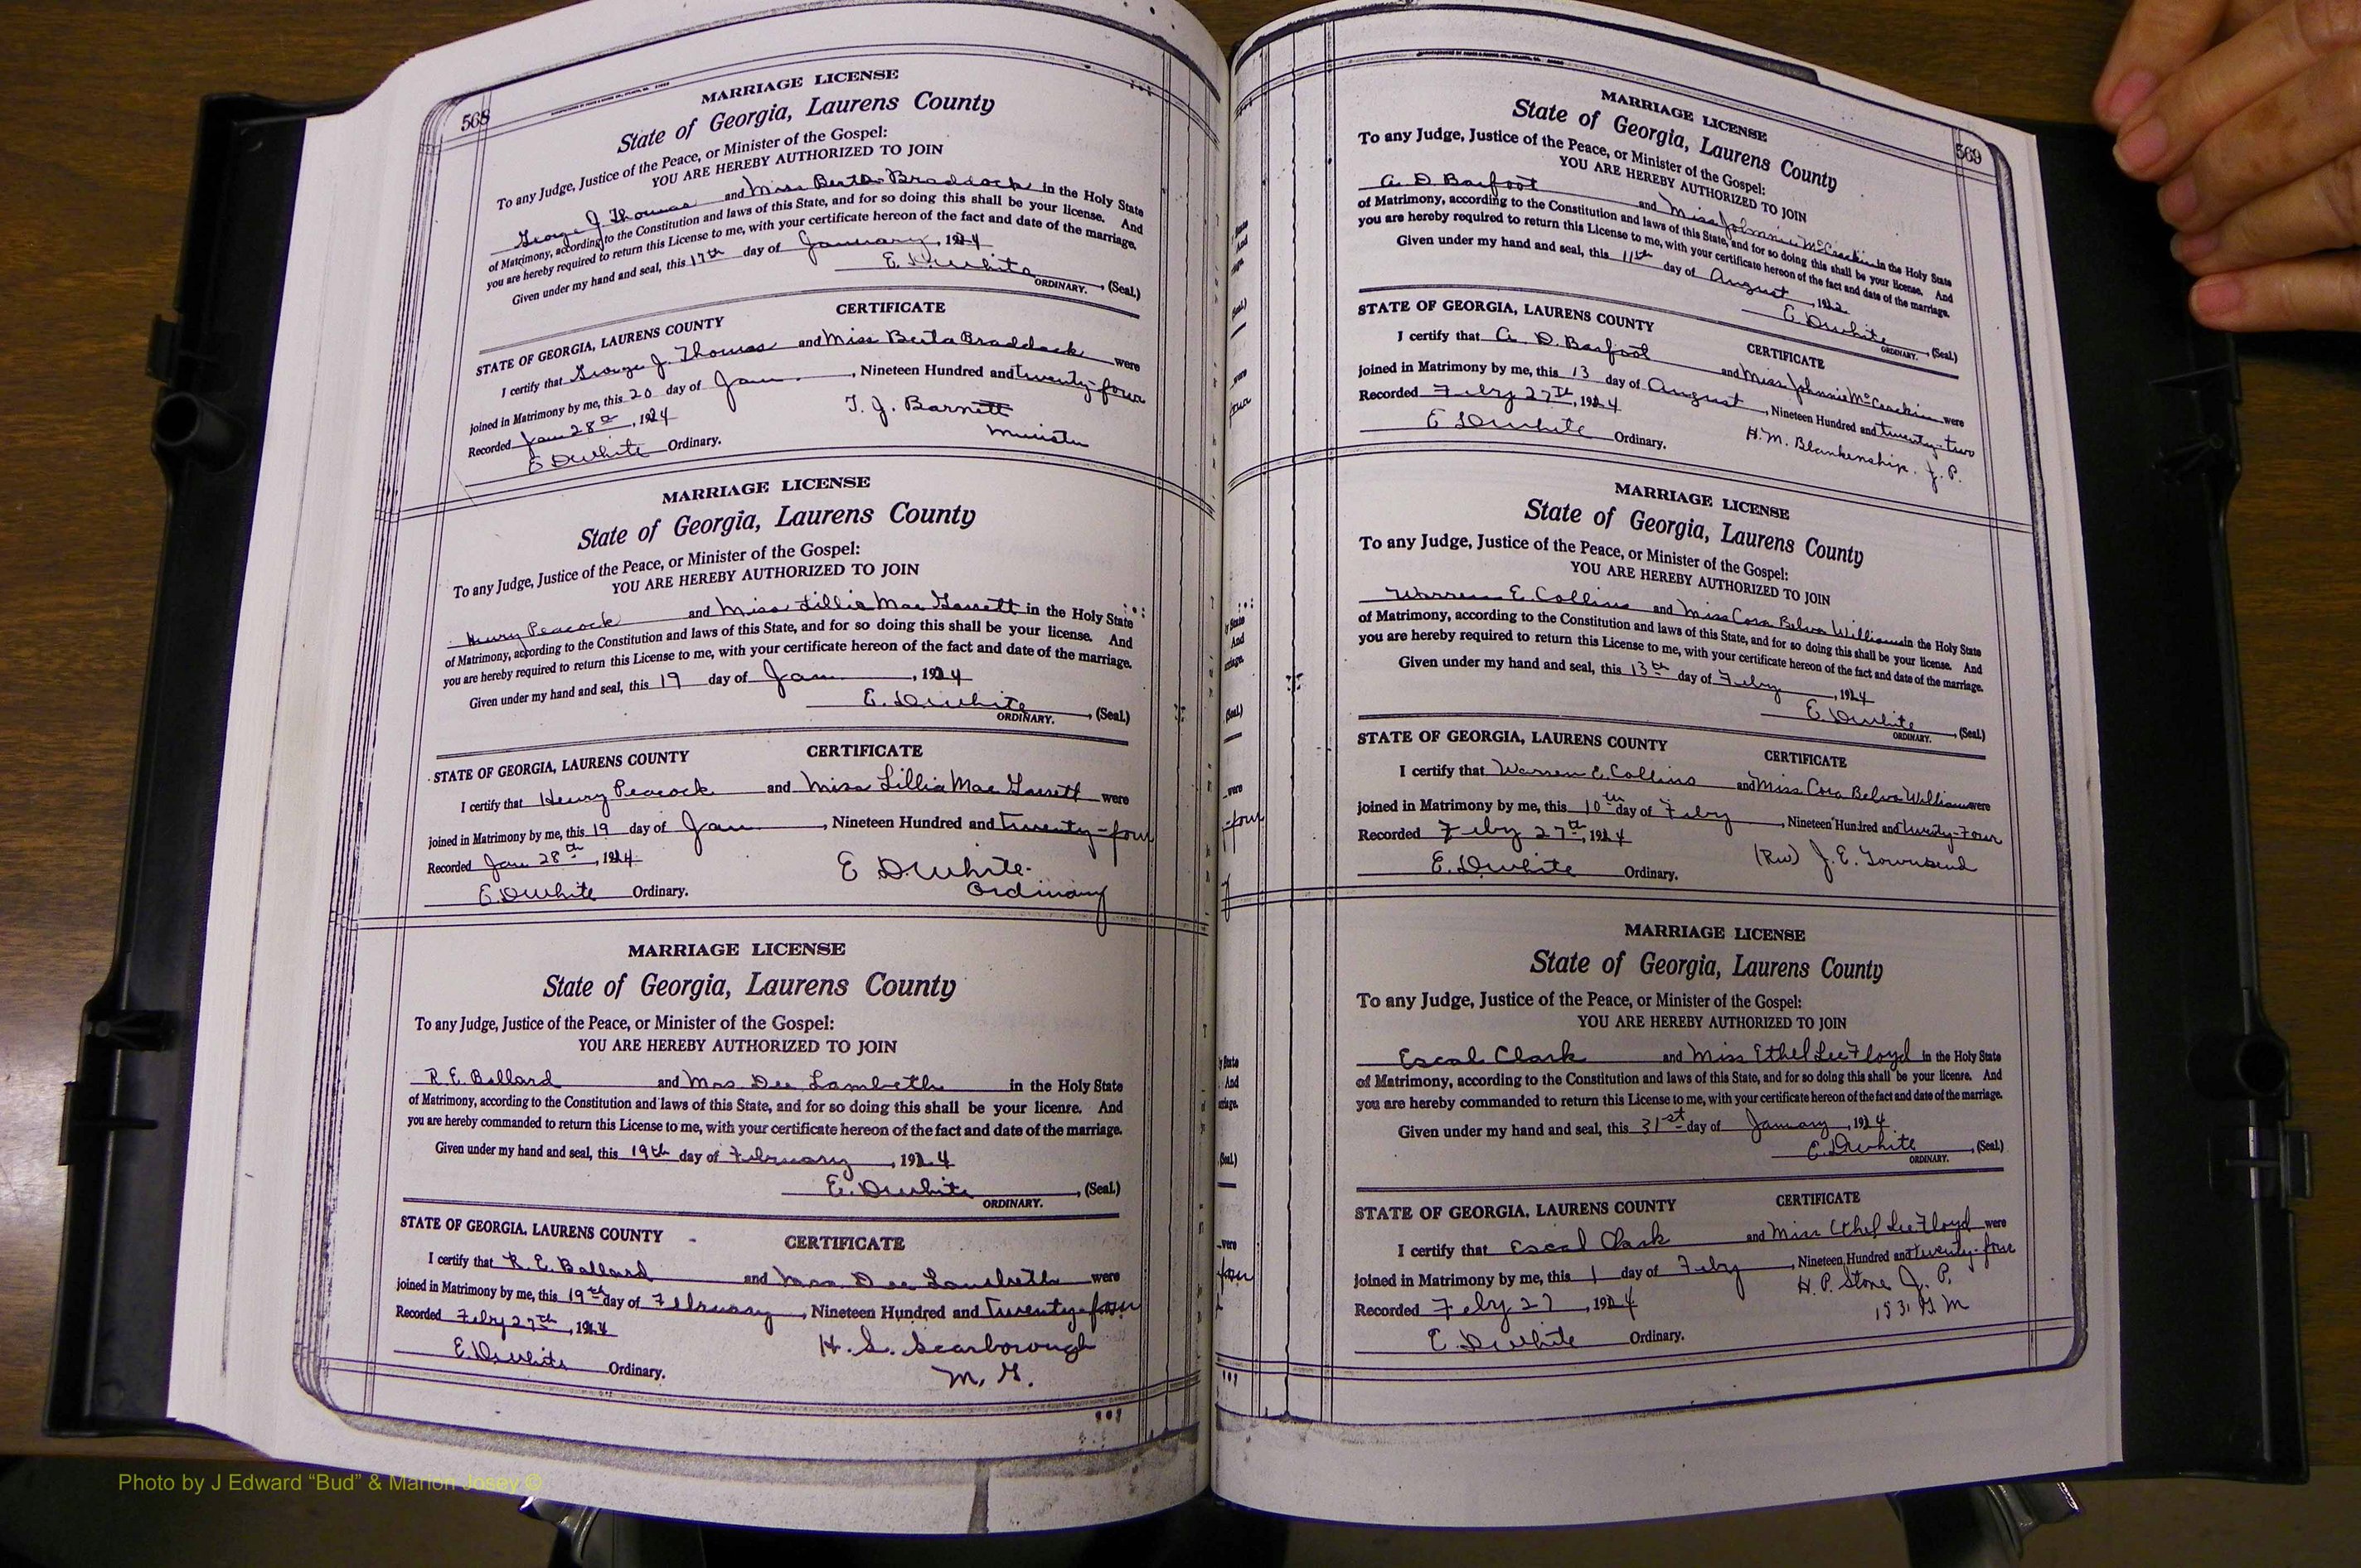 568
MARRIAGE LICENSE
State of Georgia, Laurens County
To any Judge, Justice of the Peace, or Minister of the Gospel:
YOU ARE HEREBY AUTHORIZED TO JOIN
George J. Thomas and Miss Berta Braddock in the Holy State
of Matrimony, according to the Constitution and laws of this State, and for so doing this shall be your license. And
you are hereby required to return this License to me, with your certificate hereon of the fact and date of the marriage.
Given under my hand and seal, this 17th day of January, 1924
E. D. White (Seal.)
ORDINARY.
CERTIFICATE
STATE OF GEORGIA, LAURENS COUNTY
I certify that George J. Thomas and Miss Berta Braddock were
joined in Matrimony by me, this 20 day of Jan., Nineteen Hundred and twenty-four
Recorded Jan 28th, 1924 T. J. Barnett
E D White Ordinary. Minister
MARRIAGE LICENSE
State of Georgia, Laurens County
To any Judge, Justice of the Peace, or Minister of the Gospel:
YOU ARE HEREBY AUTHORIZED TO JOIN
Henry Peacock and Miss Lillie Mae Garrett in the Holy State
of Matrimony, according to the Constitution and laws of this State, and for so doing this shall be your license. And
you are hereby required to return this License to me, with your certificate hereon of the fact and date of the marriage.
Given under my hand and seal, this 19 day of Jan, 1924
E. D White (Seal.)
ORDINARY.
CERTIFICATE
STATE OF GEORGIA, LAURENS COUNTY
I certify that Henry Peacock and Miss Lillie Mae Garrett were
joined in Matrimony by me, this 19 day of Jan, Nineteen Hundred and twenty-four
Recorded Jan 28th, 1924 E D White.
E. D White Ordinary. Ordinary
MARRIAGE LICENSE
State of Georgia, Laurens County
To any Judge, Justice of the Peace, or Minister of the Gospel:
YOU ARE HEREBY AUTHORIZED TO JOIN
R. E. Ballard and Mrs. Dee Lambeth in the Holy State
of Matrimony, according to the Constitution and laws of this State, and for so doing this shall be your license. And
you are hereby commanded to return this License to me, with your certificate hereon of the fact and date of the marriage.
Given under my hand and seal, this 19th day of February, 1924
E. D White (Seal.)
ORDINARY.
STATE OF GEORGIA, LAURENS COUNTY CERTIFICATE
I certify that R. E. Ballard and Mrs Dee Lambeth were
joined in Matrimony by me, this 19th day of February, Nineteen Hundred and twenty-four
Recorded Feby 27th, 1924 H. S. Scarborough
E. D White Ordinary. M. G.
569
MARRIAGE LICENSE
State of Georgia, Laurens County
To any Judge, Justice of the Peace, or Minister of the Gospel:
YOU ARE HEREBY AUTHORIZED TO JOIN
A. D Barfoot and Miss Johnnie McCrackin in the Holy State
of Matrimony, according to the Constitution and laws of this State, and for so doing this shall be your license. And
you are hereby required to return this License to me, with your certificate hereon of the fact and date of the marriage.
Given under my hand and seal, this 11th day of August, 1922
E. D White (Seal.)
ORDINARY.
STATE OF GEORGIA, LAURENS COUNTY
CERTIFICATE
I certify that A. D. Barfoot and Miss Johnnie McCrackin were
joined in Matrimony by me, this 13 day of August, Nineteen Hundred and twenty-two
Recorded Feby 27th, 1924 H. M. Blankenship. J. P.
E D White Ordinary.
MARRIAGE LICENSE
State of Georgia, Laurens County
To any Judge, Justice of the Peace, or Minister of the Gospel:
YOU ARE HEREBY AUTHORIZED TO JOIN
Warren E. Collins and Miss Cora Belva Williams in the Holy State
of Matrimony, according to the Constitution and laws of this State, and for so doing this shall be your license. And
you are hereby required to return this License to me, with your certificate hereon of the fact and date of the marriage.
Given under my hand and seal, this 13th day of Feby, 1924
E. D White (Seal.)
ORDINARY.
STATE OF GEORGIA, LAURENS COUNTY
CERTIFICATE
I certify that Warren E. Collins and Miss Cora Belva Williams were
joined in Matrimony by me, this 10th day of Feby, Nineteen Hundred and Twenty-Four
Recorded Feby 27th, 1924 (Rev) J. E. Townsend
E. D White Ordinary.
MARRIAGE LICENSE
State of Georgia, Laurens County
To any Judge, Justice of the Peace, or Minister of the Gospel:
YOU ARE HEREBY AUTHORIZED TO JOIN
Escal Clark and Miss Ethel Lee Floyd in the Holy State
of Matrimony, according to the Constitution and laws of this State, and for so doing this shall be your license. And
you are hereby commanded to return this License to me, with your certificate hereon of the fact and date of the marriage.
Given under my hand and seal, this 31st day of January, 1924
E. D White (Seal.)
ORDINARY.
CERTIFICATE
STATE OF GEORGIA, LAURENS COUNTY
I certify that Escal Clark and Miss Ethel Lee Floyd were
joined in Matrimony by me, this 1 day of Feby, Nineteen Hundred and twenty-four
H. P. Stone J. P.
Recorded Feby 27, 1924 1531 G M
E. D White Ordinary.
Photo by J Edward “Bud” & Marion Josey ©